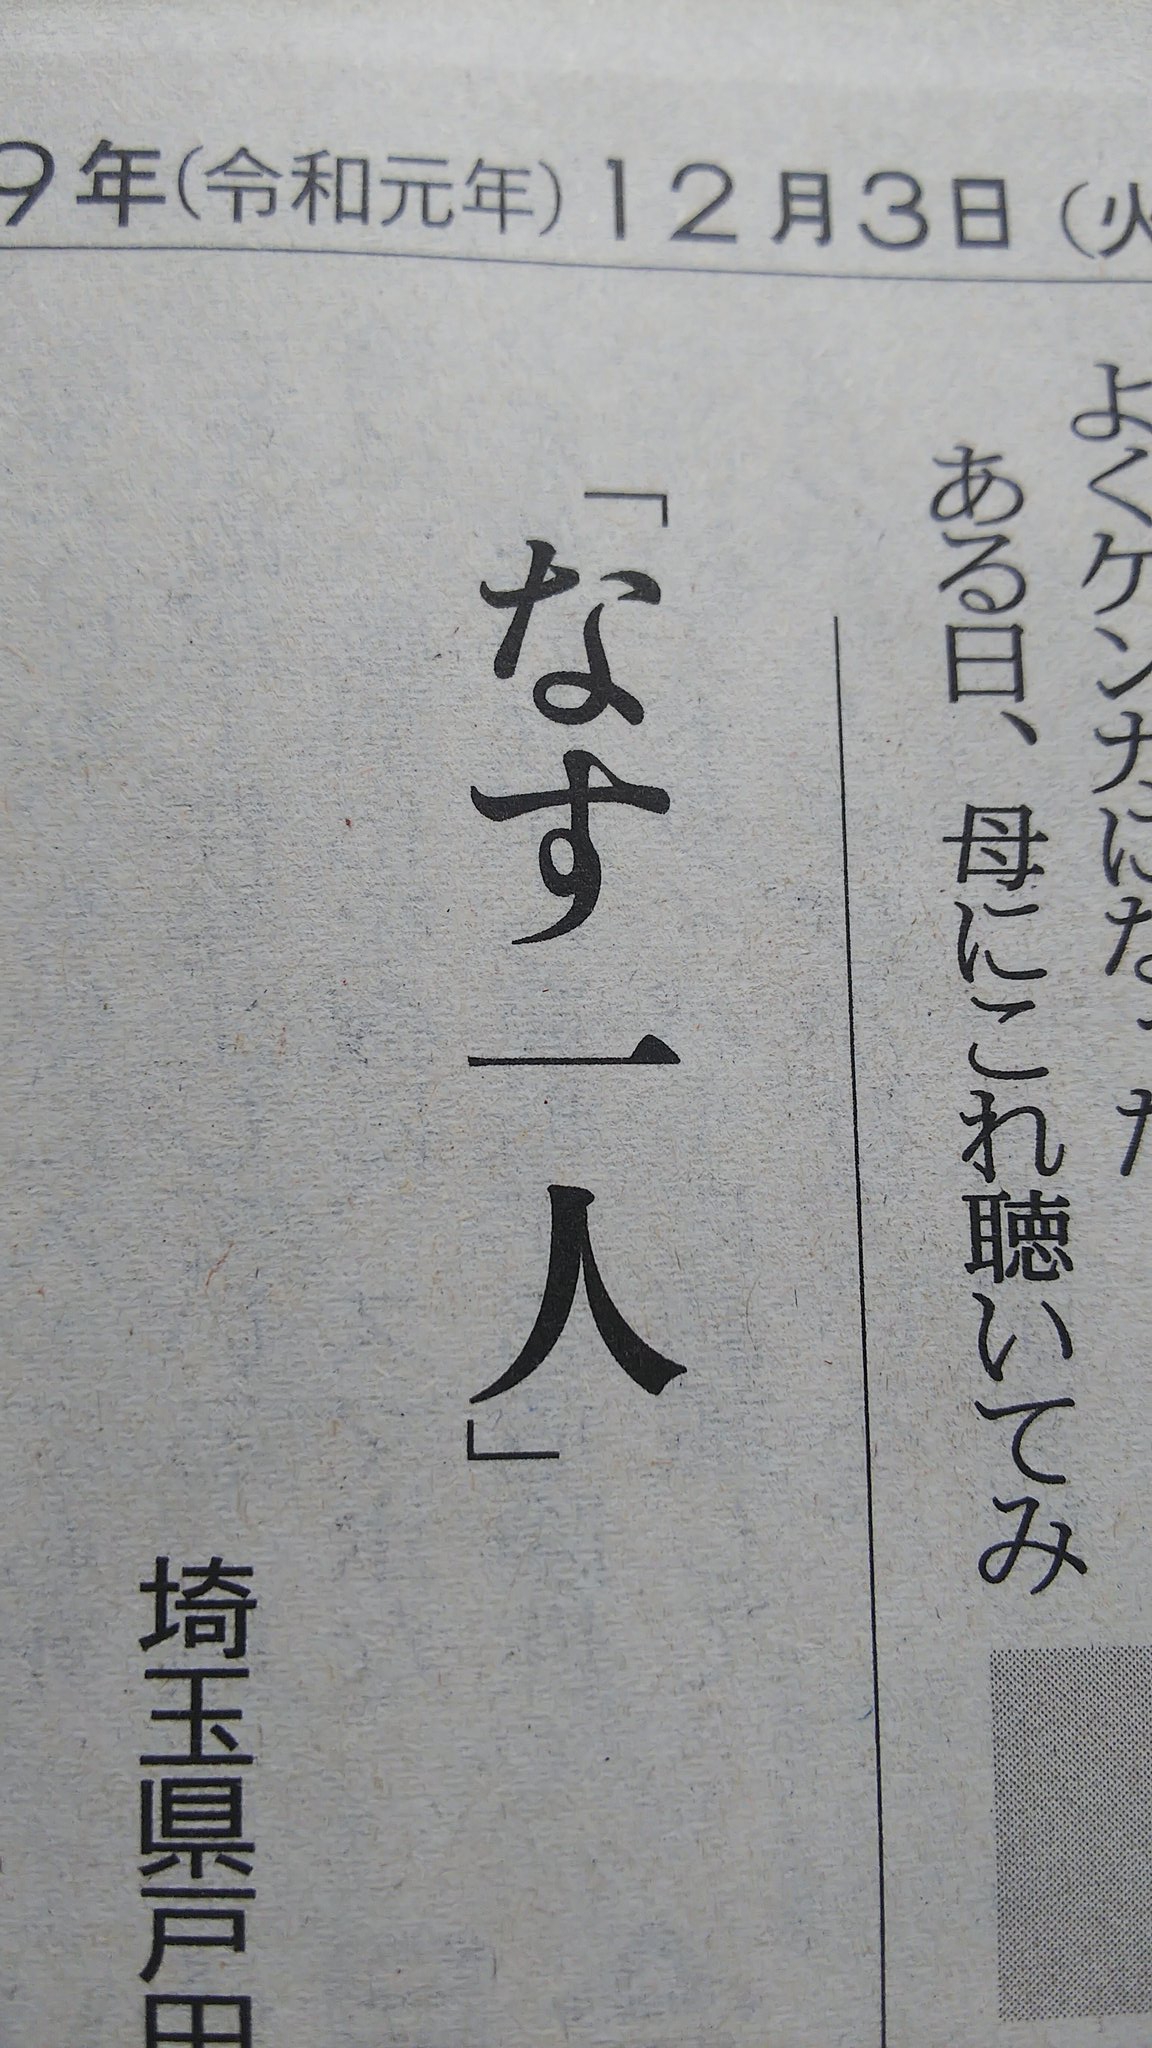 9年(令和元年)12月3日(火
よくケンカになった
ある日、母にこれ聴いてみ
「なす一人」
埼玉県戸田